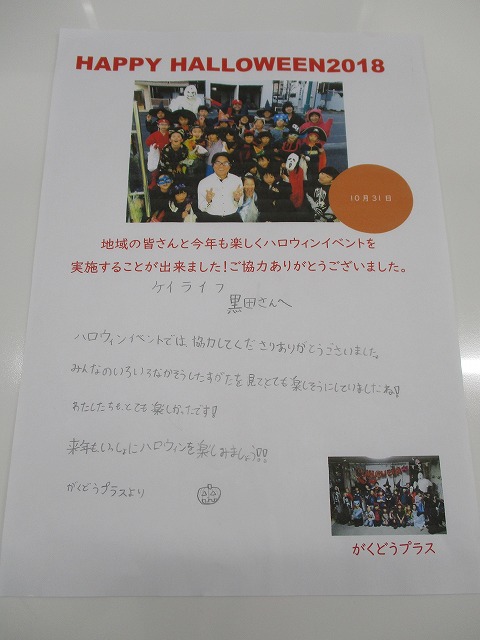 HAPPY HALLOWEEN2018
10月31日
地域の皆さんと今年も楽しくハロウィンイベントを
実施することが出来ました!ご協力ありがとうございました。
ケイライフ
黒田さんへ
ハロウィンイベントでは協力してくださりありがとうございました。
みんなのいろいろなかそうしたすがたを見てとても楽しそうにしていましたね!
わたしたちも、とても楽しかったです!!
来年もいっしょにハロウィンを楽しみましょう!!
がくどうプラスより
がくどうプラス